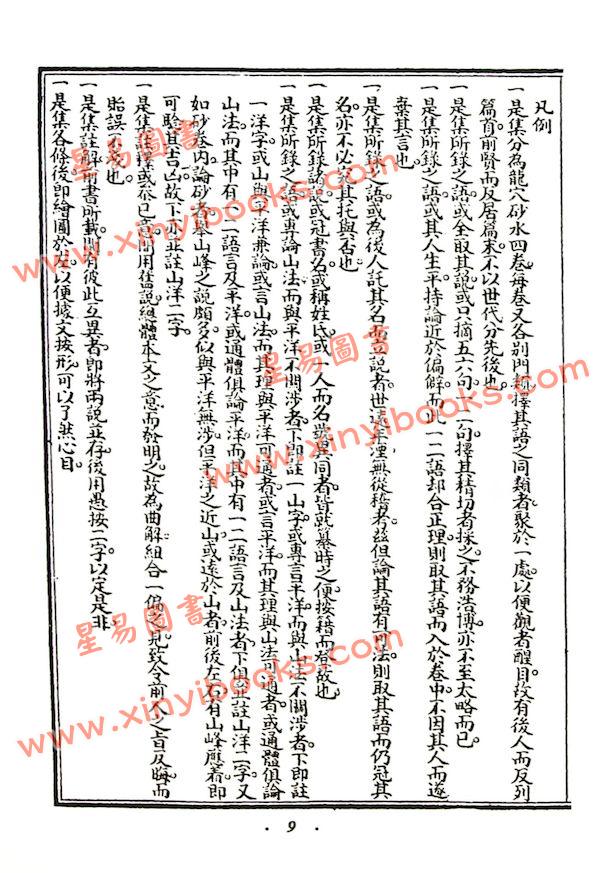 凡例
一是集分為龍穴砂水四卷每卷又各別門類擇其語之同類者聚於一處以便觀者醒目故有後人而反列
篇首前賢而反居篇末不以世代分先後也
一是集所錄之語或全取其說或只摘五六句一二句擇其精切者採之不務浩博亦不至太略而已
一是集所錄之語或其人生平持論近於偏僻而此一二語却合正理則取其語而入於卷中不因其人而遂
棄其言也
一是集所錄之語或為後人託其名而立說者世遠年湮無從稽考茲但論其語有可法則取其語而仍冠其
名亦不必究其托與否也
一是集所錄諸說或冠書名或稱姓氏或一人而名號異同者皆就纂時之便按籍而登故也
一是集所錄之語或專論山法而與平洋不關涉者下即註一山字或專言平洋而與山法不關涉者下即註
一洋字或山與平洋兼論或言山法而其理與平洋可通者或言平洋而其理與山法可通者或通體俱論
山法而其中有一二語言及平洋或通體俱論平洋而其中有一二語言及山法者下俱並註山洋二字又
如砂卷內論砂者舉山峰之說頗多似與平洋無涉但平洋之近山或遠於山者前後左右有山峰應着即
可驗其吉凶故下亦並註山洋二字
一是集註釋或參己意間用舊說總體本文之意而發明之故為曲解組合一偏之見致令前人之旨反晦而
貽誤不淺也
一是集註解所書所載間有彼此互異者即將兩說並存後用愚按二字以定是非
一是集各條後即繪圖於左以便據文按形可以了然心目
星易圖書
www.xinyibooks.com
星易圖書
www.xinyibooks.com
星易圖書
www.xinyibooks.com
· 9 ·